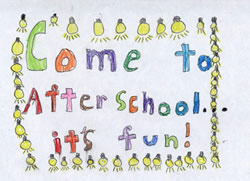 Come to
After School...
it's fun!